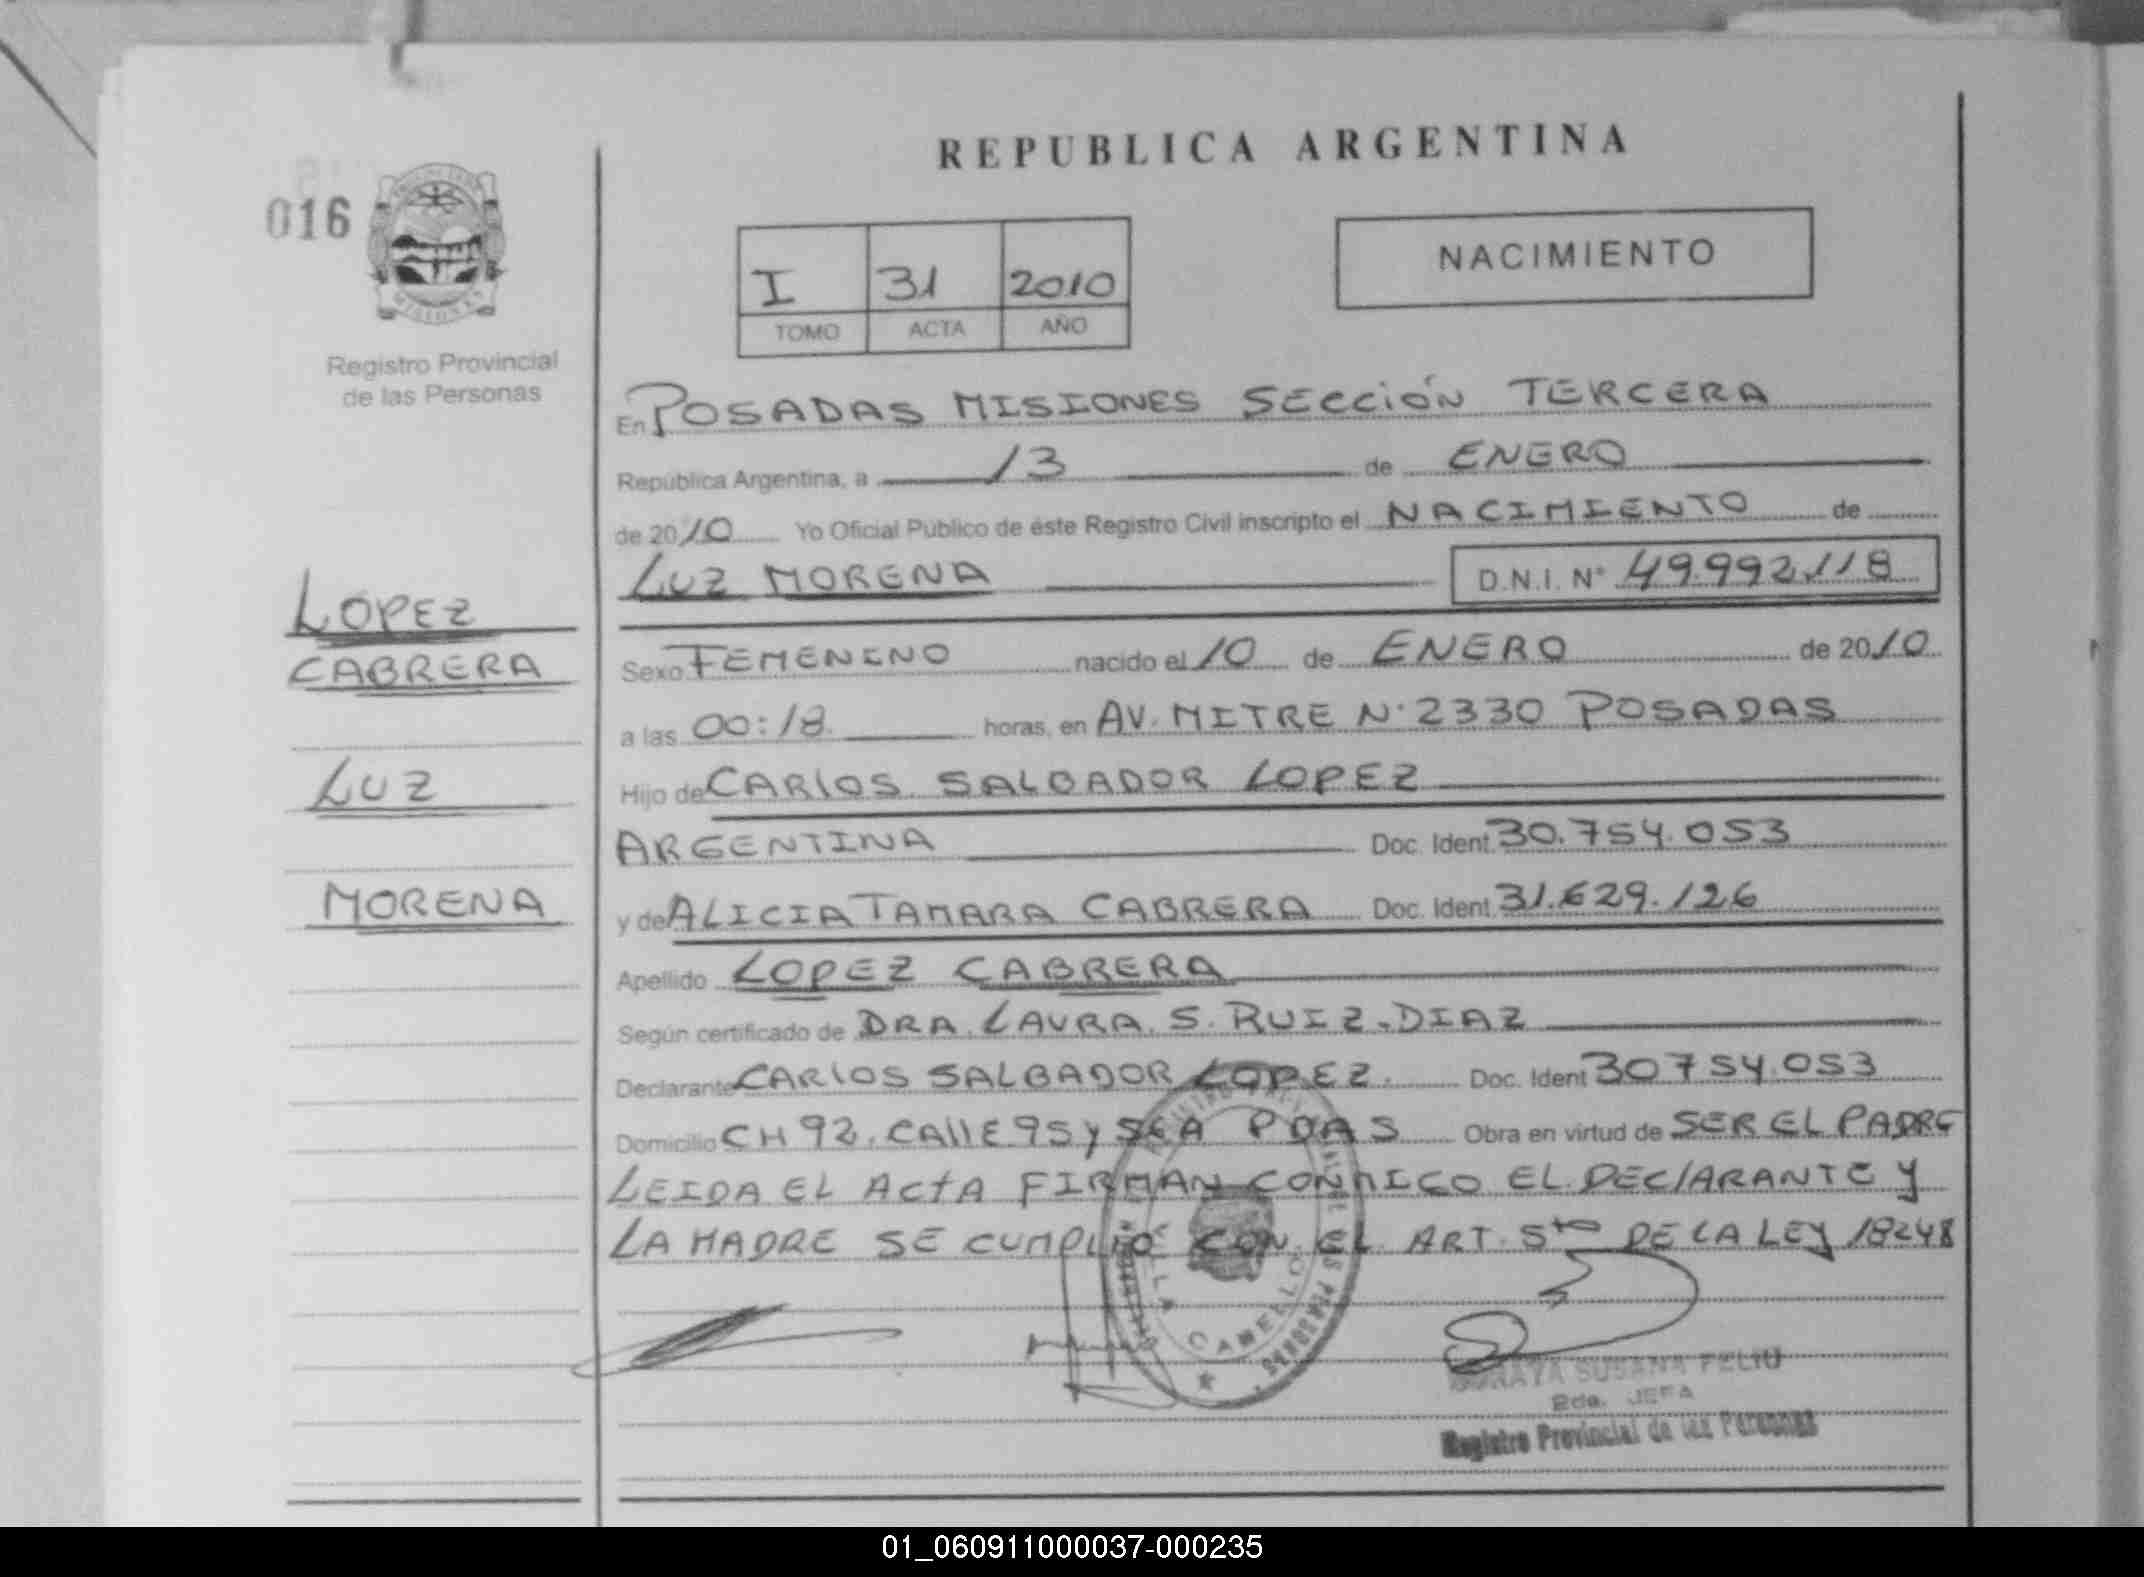 REPUBLICA ARGENTINA
016
MISIONES
Registro Provincial
de las Personas
I 31 2010
TOMO ACTA AÑO
NACIMIENTO
En POSADAS MISIONES SECCIÓN TERCERA
República Argentina, a 13 de ENERO
de 2010 Yo Oficial Público de éste Registro Civil inscripto el NACIMIENTO de
LUZ MORENA D.N.I. N° 49.992.118
LOPEZ
CABRERA
LUZ
MORENA
Sexo FEMENINO nacido el 10 de ENERO de 2010
a las 00:18 horas, en AV. MITRE N° 2330 POSADAS
Hijo de CARLOS SALBADOR LOPEZ
ARGENTINA Doc. Ident. 30.754.053
y de ALICIA TAMARA CABRERA Doc. Ident. 31.629.126
Apellido LOPEZ CABRERA
Según certificado de DRA. LAURA S. RUIZ DIAZ
Declarante CARLOS SALBADOR LOPEZ. Doc. Ident 30754.053
Domicilio CH 92. CALLE 95 y PDAS Obra en virtud de SER EL PADRE
LEIDA EL ACTA FIRMAN CONMIGO EL DECLARANTE Y
LA MADRE SE CUMPLIO CON EL ART. 5to DE LA LEY 18248
SUSANA FELIU
JEFA
Registro Provincial de las Personas
01_060911000037-000235